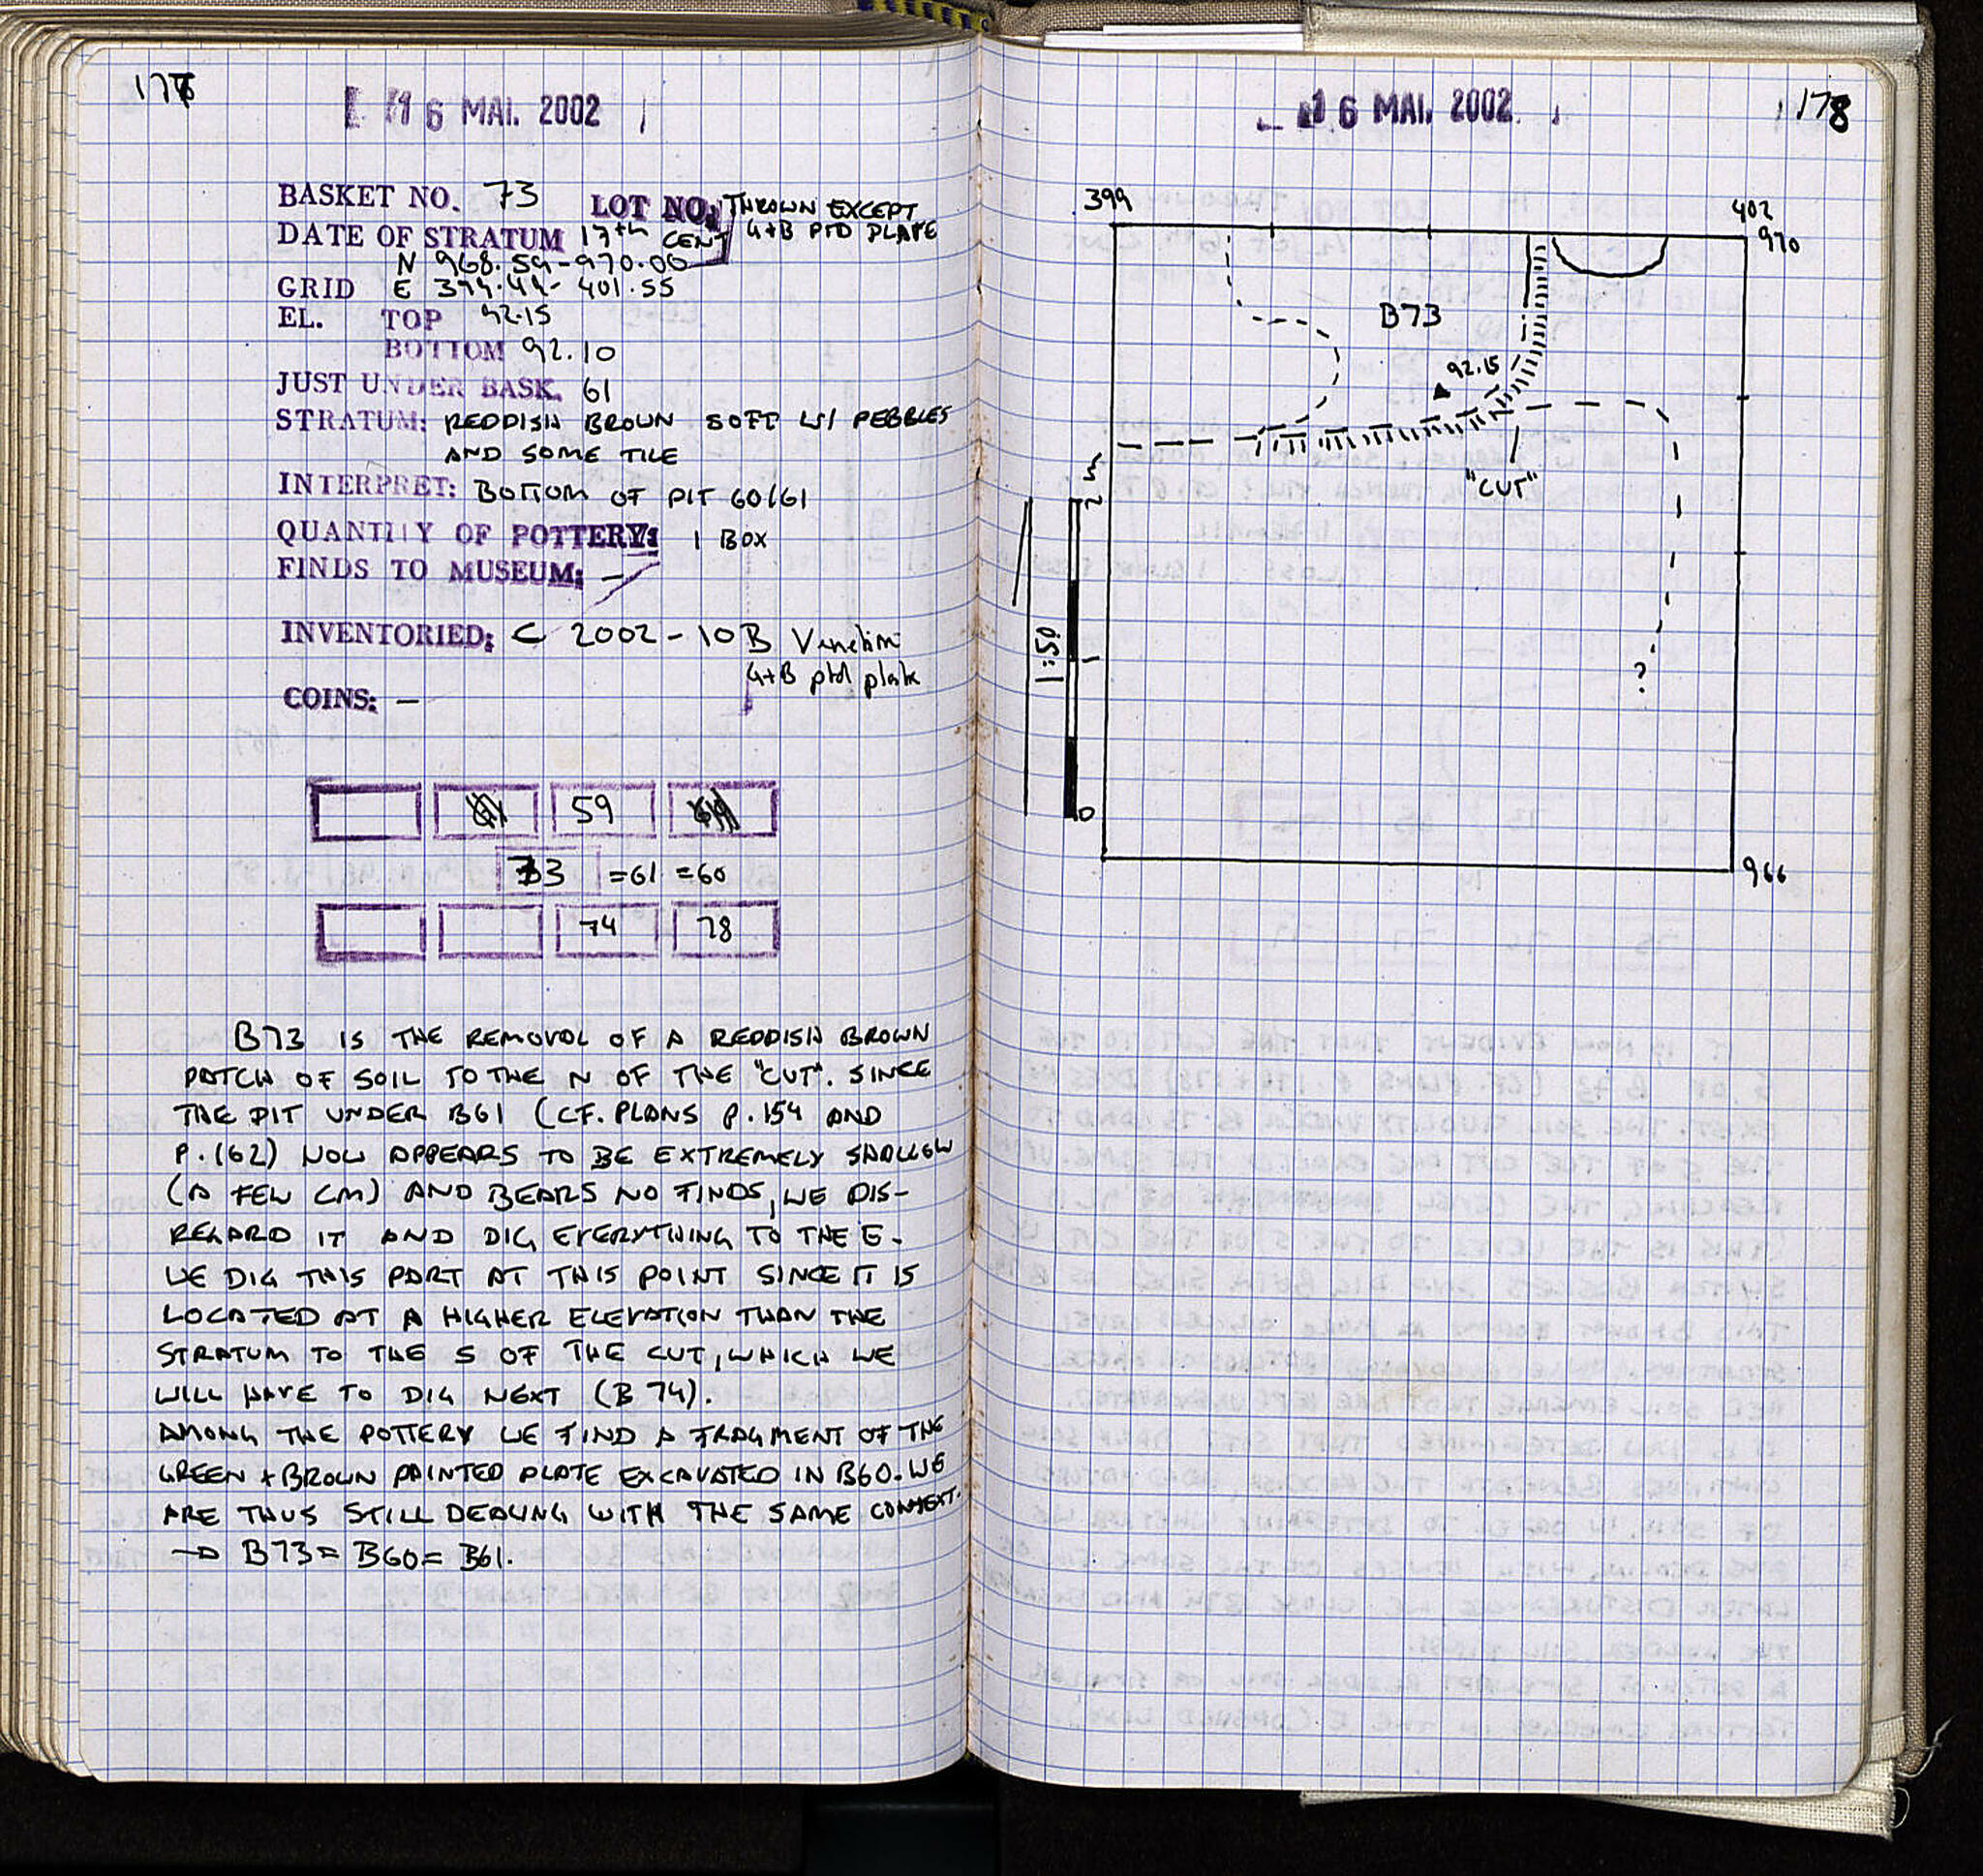 177
16 MAI. 2002
BASKET NO. 73 LOT NO. THROWN EXCEPT
G+B PTD PLATE
DATE OF STRATUM 17th CENT
N 968.59-970.00
GRID E 399.49- 401.55
EL. TOP 92.15
BOTTOM 92.10
JUST UNDER BASK. 61
STRATUM: REDDISH BROWN SOFT W/ PEBBLES
AND SOME TILE
INTERPRET: BOTTOM OF PIT 60/61
QUANTITY OF POTTERY: 1 BOX
FINDS TO MUSEUM: —
INVENTORIED: C 2002-10 B Venetian
G+B ptd plate
COINS: —
59
73 =61 =60
74 78
B73 IS THE REMOVAL OF A REDDISH BROWN
PATCH OF SOIL TO THE N OF THE "CUT". SINCE
THE PIT UNDER B61 (CF. PLANS P.154 AND
P.162) NOW APPEARS TO BE EXTREMELY SHALLOW
(A FEW CM) AND BEARS NO FINDS, WE DIS-
REGARD IT AND DIG EVERYTHING TO THE E.
WE DIG THIS PART AT THIS POINT SINCE IT IS
LOCATED AT A HIGHER ELEVATION THAN THE
STRATUM TO THE S OF THE CUT, WHICH WE
WILL HAVE TO DIG NEXT (B 74).
AMONG THE POTTERY WE FIND A FRAGMENT OF THE
GREEN + BROWN PAINTED PLATE EXCAVATED IN B60. WE
ARE THUS STILL DEALING WITH THE SAME CONTEXT.
→ B73 = B60 = B61.
16 MAI. 2002
178
399
402
970
B73
92.15
"CUT"
2 m
1:50
1
?
0
966